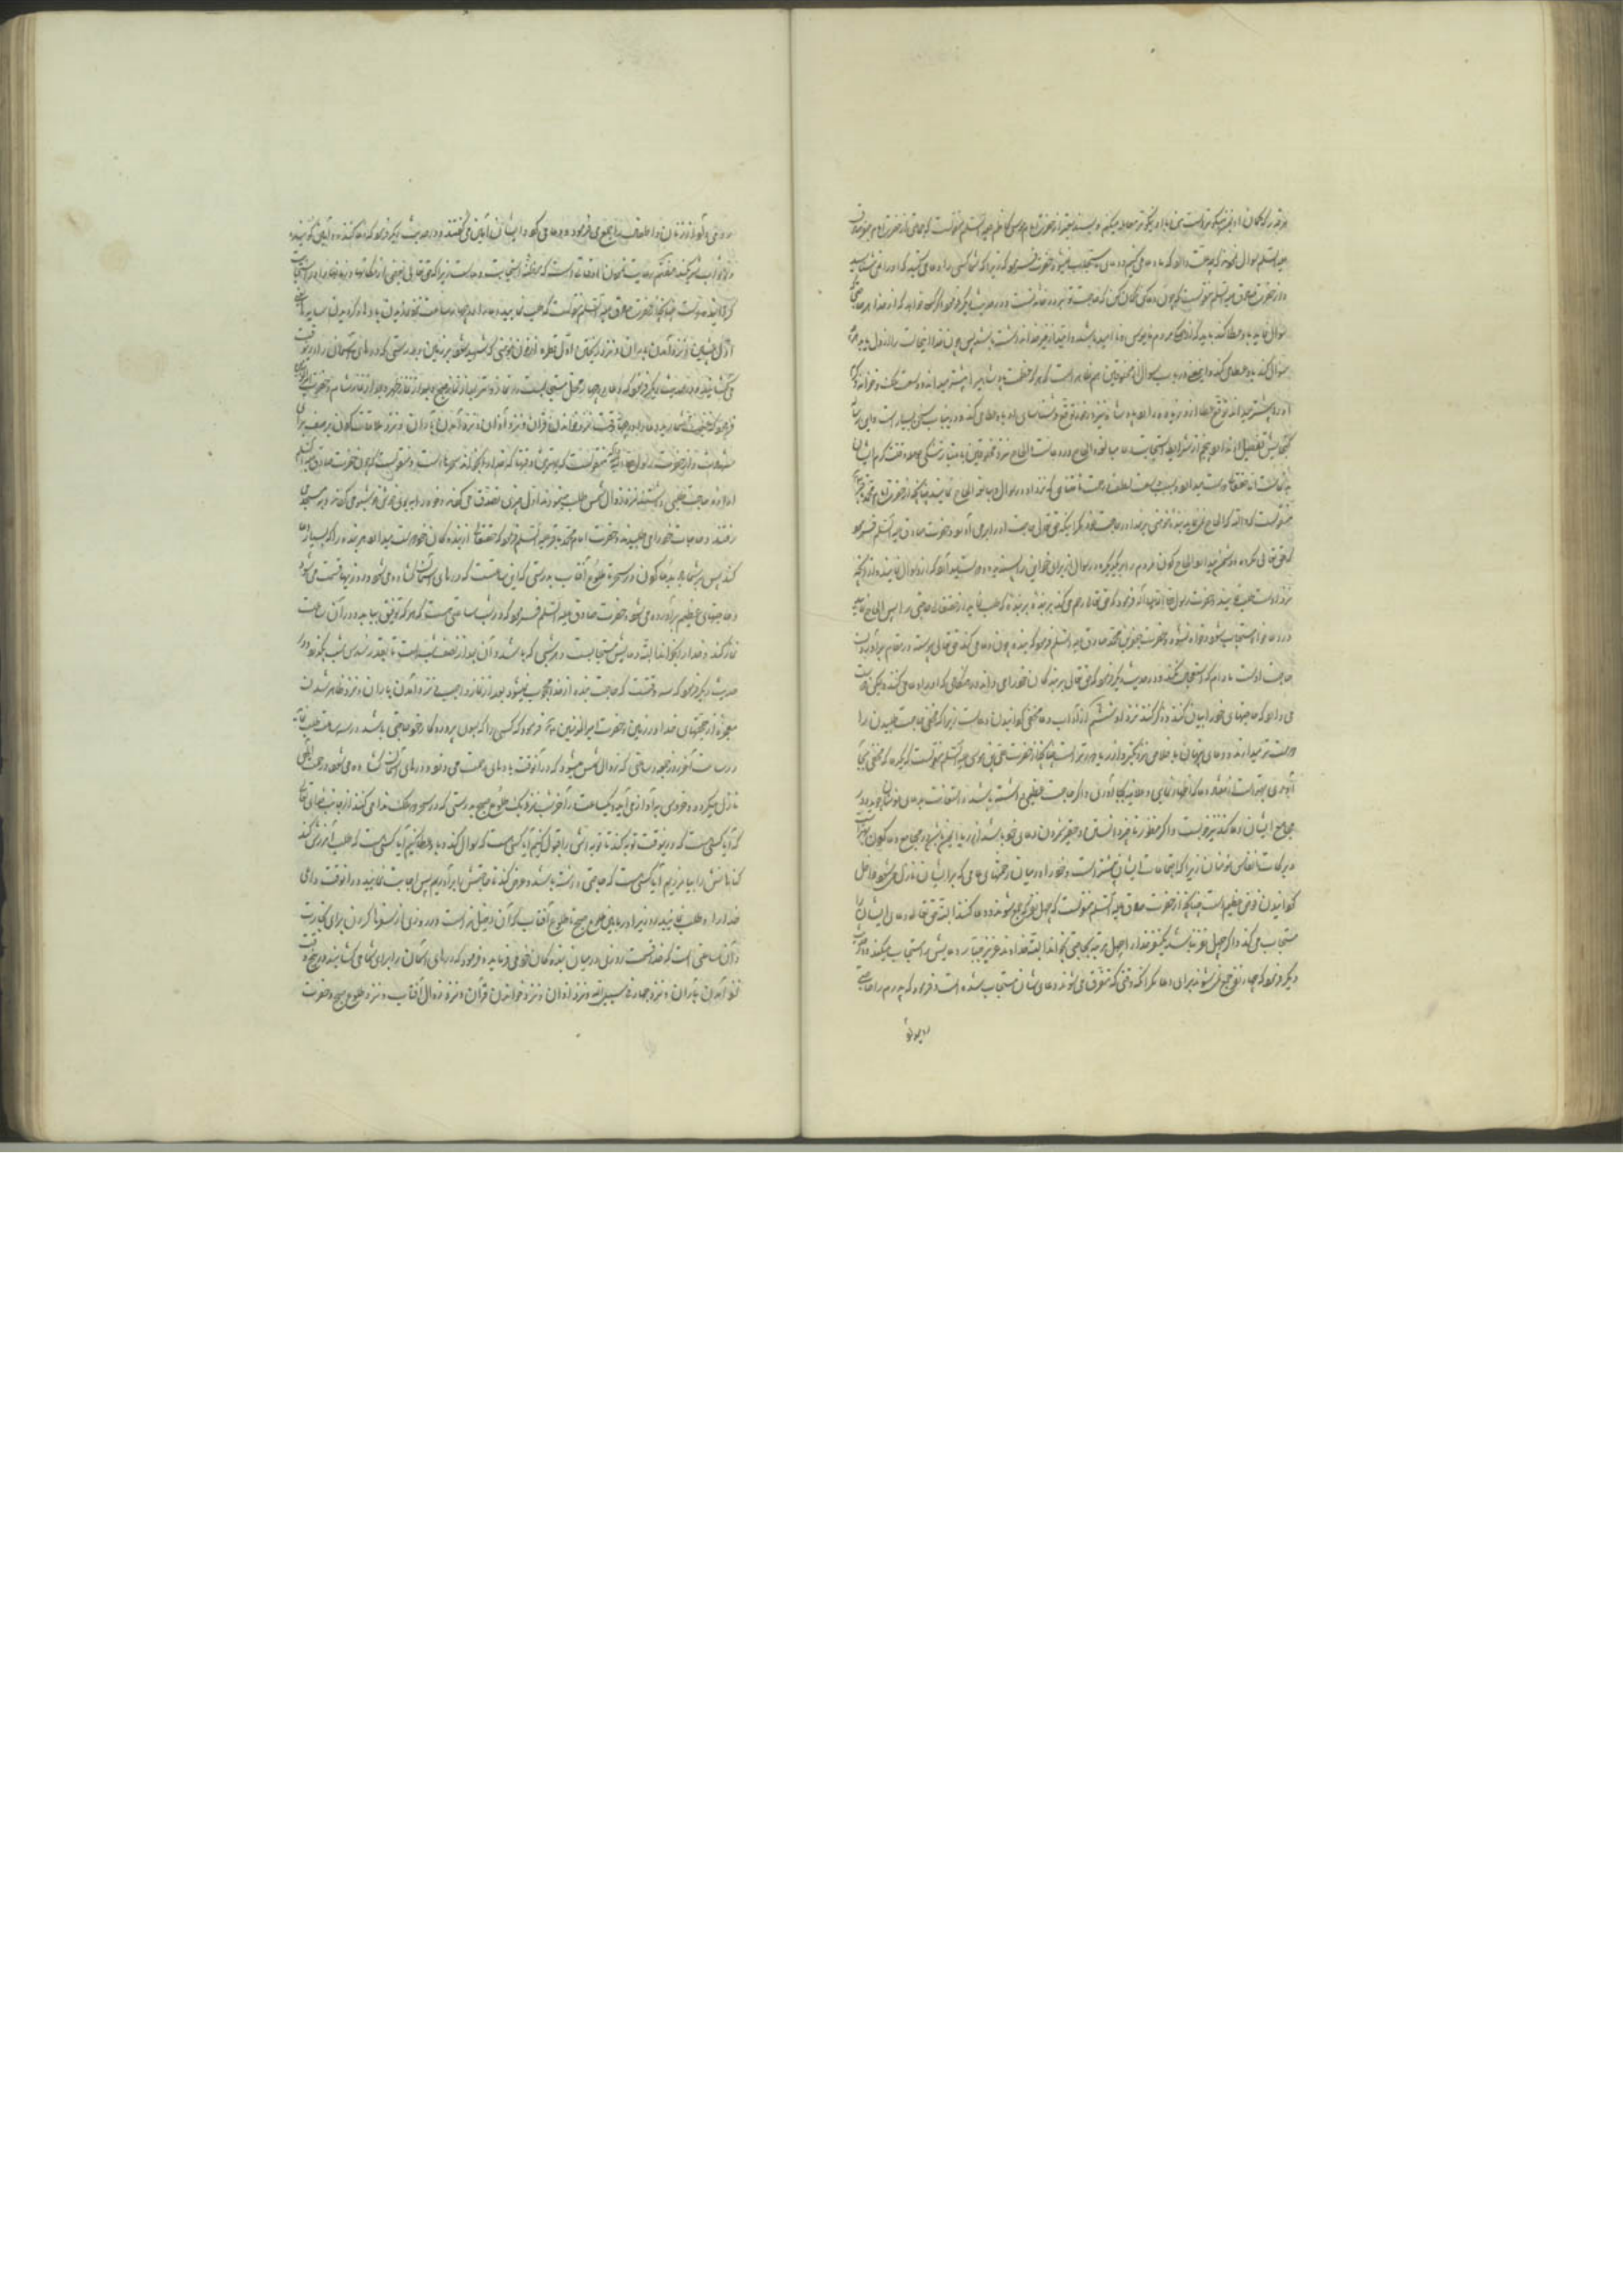 هر قدر که گمان او نیز نیکوتر است من با او نیکوتر معامله میکنم و بسند معتبر از حضرت امام موسی کاظم علیه السلام منقولست که جماعتی از حضرت امام جعفر صادق
علیه السلام سوال نمودند که چه علت دارد که ما دعا می کنیم و دعای ما مستجاب نمیشود حضرت فرمود که زیرا که شما کسی را دعا می کنید که او را نمی شناسید
و از حضرت صادق علیه السلام منقولست که چون دعا کنی گمان کن که حاجت تو بر در خانه است و در حدیث دیگر فرمود که اگر کسی خواهد که از خدا هر حاجتی
سوال نماید باو عطا کند باید که از همه مردم مایوس و ناامید باشد و امید از غیر خدا نداشته باشد پس چون خدا این حالت را از دل او یابد هر چه
سوال کند باو عطا می کند و این معنی در باب سوال از مخلوقین هم ظاهر است که هر که عظمت پادشاهی را بیشتر میداند و وسعت مملکت و خزانه و کرم
او را بیشتر میداند توقع عطا از او زیاده دارد و پادشاه نیز در خور توقع و شناسایی او باو عطا می کند و در این باب سخن بسیار است و این رساله
گنجایش تفصیل آنها ندارد پنجم از شرایط استجابت دعا مبالغه و الحاح در دعاست و الحاح نزد مخلوقین باعتبار تنگی حوصله و قلت کرم ایشان
بد نماست اما حقتعالی دوست میدارد و بسبب وسعت لطف و رحمت نامتناهی که نزد او در سوال مبالغه و الحاح نمایند چنانچه از حضرت امام محمد باقر
منقولست که والله که الحاح نمی نماید بنده مؤمنی بر خدا در حاجت خود مگر اینکه حق تعالی حاجت او را بر می آورد و حضرت صادق علیه السلام فرمود
که حق تعالی مکروه و دشمن میدارد الحاح کردن مردم را بر یکدیگر در سوال از برای خود این را پسندیده و دوست میدارد که از او سوال نمایند و از آنچه
نزد اوست طلب نمایند و حضرت رسول صلی الله علیه و آله فرمود که حق تعالی رحم می کند بر بنده که طلب نماید از حقتعالی حاجتی را پس الحاح نماید
در دعا خواه مستجاب بشود و خواه نشود و حضرت جعفر بن محمد صادق علیه السلام فرمود که بنده چون دعا می کند حق تعالی پیوسته در مقام برآوردن
حاجت اوست مادام که استعجال نکند و در حدیث دیگر فرمود که حق تعالی مراد بندگان خود را می داند در هنگامی که او را دعا می کنند و لیکن دوست
می دارد که حاجتهای خود را بیان کنند و ذکر کنند نزد او ششم از آداب دعا مخفی گردانیدن دعاست زیرا که مخفی حاجت طلبیدن را
دوست تر میدارند و دعای پنهان باخلاص نزدیکتر و از ریا دورتر است چنانچه از حضرت علی بن موسی علیه السلام منقولست که یک دعا که مخفی بجا
آوری بهتر است از هفتاد دعا که اظهار نمایی و علانیه بجا آوری و اگر حاجت عظیمی داشته باشد و استعانت بدعای مؤمنان جوید و در
مجامع ایشان دعا کند نیز خوبست و اگر منظور ناچیز دانستن و حقیر شمردن دعای خود باشد و از ریا ایمن باشد در مجامع دعا کردن بهتر است
و برکات انفاس مؤمنان زیرا که اجتماعات ایشان مؤثر است و خود را در میان رحمتهای عامی که بر ایشان نازل می شود داخل
گردانیدن فوزی عظیم است چنانچه از حضرت صادق علیه السلام منقولست که چهل نفر که جمع شوند و دعا کنند البته حق تعالی دعای ایشان را
مستجاب می کند و اگر چهل نفر نباشند یکنفر خدا را چهل مرتبه بحاجتی بخواند البته خداوند عزیز جبار دعایش را مستجاب میکند و در حدیث
دیگر فرمود که چهار نفر جمع نمی شوند برای دعا مگر آنکه وقتی که متفرق می شوند دعای ایشان مستجاب شده است و فرمود که پدرم را هرگاه حاجتی
رو میداد
رو می داد زنان و اطفال را جمع می فرمود و دعا می کرد و ایشان آمین می گفتند و در حدیث دیگر فرمود که دعا کننده و آمین گوینده
در ثواب شریکند هفتم رعایت نمودن اوقاتی است که مظنه استجابت دعاست زیرا که حق تعالی بعضی از مکانها و زمانها را در استجابت
گردانیده است چنانچه از حضرت صادق علیه السلام منقولست که طلب نمایید دعا را در چهار ساعت نزد وزیدن بادها و گردیدن سایه ها یعنی
اول پیشین و نزد آمدن باران و نزد ریختن اول قطره از خون مؤمنی که شهید میشود بر زمین بدرستی که درهای آسمان را در این وقت
می گشایند و در حدیث دیگر فرمود که دعا در چهار محل مستجابست در نماز وتر و بعد از نماز صبح و بعد از نماز ظهر و بعد از نماز شام و حضرت امیر المؤمنین
فرمود که غنیمت شمارید دعا را در چهار وقت نزد خواندن قرآن و نزد اذان و نزد آمدن باران و نزد ملاقات کردن دو صف برای
شهادت و از حضرت رسول صلی الله علیه و آله منقولست که بهترین وقتها که خدا را بخوانند سحرهاست و منقولست که چون حضرت صادق علیه السلام
اراده حاجت طلبی داشتند نزد زوال شمس طلب مینمودند اول چیزی تصدق می کردند و خود را ببوی خوشی خوشبو می کردند و بمسجد می
رفتند و حاجات خود را می طلبیدند و حضرت امام محمد باقر علیه السلام فرمود که حقتعالی از بندگان خود دوست میدارد هر بنده را که بسیار دعا
کند پس بر شما باد بدعا کردن در سحر تا طلوع آفتاب بدرستی که این ساعتیست که درهای آسمان گشاده می شود و روزیها قسمت می شود
و حاجتهای عظیم برآورده می شود و حضرت صادق علیه السلام فرمود که در شب ساعتی هست که هر که توفیق بیابد و در آن ساعت
نماز کند و خدا را بخواند البته دعایش مستجابست در هر شبی که باشد و آن بعد از نصف شب است تا بقدر سدس شب بگذرد و در
حدیث دیگر فرمود که سه وقتست که حاجت بنده از خدا محجوب نمیشود بعد از نماز واجب و نزد آمدن باران و نزد ظاهر شدن
معجزه از حجتهای خدا در زمین و حضرت امیر المؤمنین فرمود که کسی را که بسوی پروردگار خود حاجتی باشد در سه ساعت طلب نماید
در ساعت آخر روز جمعه و ساعتی که زوال شمس میشود که در آن وقت بادهای رحمت می وزد و درهای آسمان گشاده می شود و رحمت الهی
نازل میگردد و خروس به آواز می آید و یک ساعت در آخر شب نزدیک طلوع صبح بدرستی که در سحر دو ملک ندا می کنند از جانب خدای تعالی
که آیا کسی هست که در این وقت توبه کند تا توبه اش را قبول کنیم آیا کسی هست که سوال کند و ما باو عطا کنیم آیا کسی هست که طلب آمرزش کند
گناهانش را بیامرزیم آیا کسی هست که حاجتی داشته باشد و عرض کند تا حاجتش را برآوریم پس اجابت نمایید در آن وقت داعی
خدا را و طلب نمایید روزی را در مابین طلوع صبح تا طلوع آفتاب که آن دخیل تر است در روزی از سفر کردن برای تجارت
و آن ساعتی است که خدا قسمت روزی در میان بندگان خود می فرماید و فرمود که درهای آسمان را برای شما می گشایند در پنج وقت
نزد آمدن باران و نزد جهاد فی سبیل الله و نزد اذان و نزد خواندن قرآن و نزد زوال آفتاب و نزد طلوع صبح و حضرت